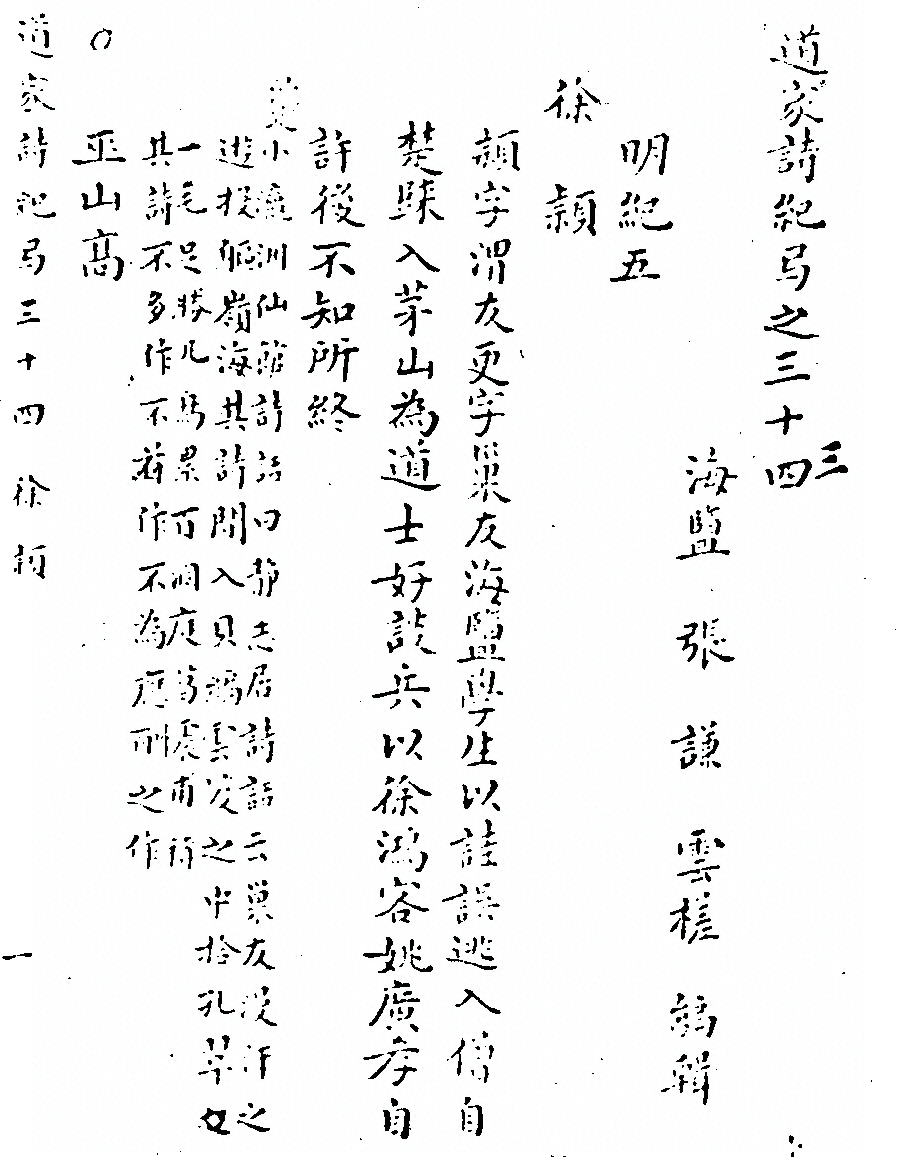 道家詩紀弓之三十四
三
海盬 張 謙 雲槎 編輯
明紀五
徐 穎
穎字渭友更字巢友海鹽學生以詿誤逃入僧自
楚騄入茅山為道士好談兵以徐鴻客姚廣孝自
許後不知所終
小瀛洲仙館詩話曰靜志居詩話云巢友漫汗之
遊投軀嶺海其詩間入貝編雲笈之中拾孔翠
一毛足勝凡鳥累百洞庭葛震甫
其詩不多作不若作不為應酬之作
巫山高
道家詩紀弓三十四 徐穎
一